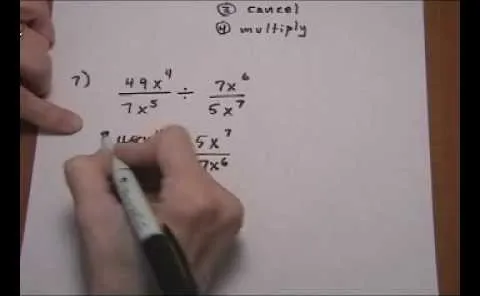 ③ cancel
④ multiply
7) 49x⁴/7x⁵ ÷ 7x⁶/5x⁷
5x⁷/7x⁶